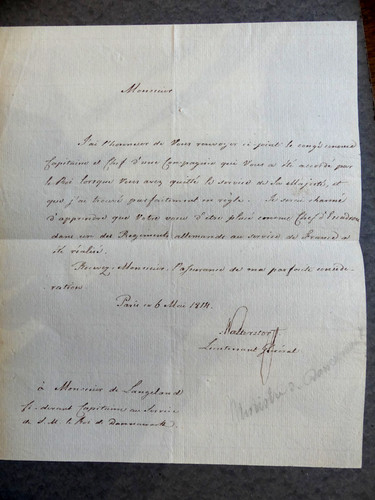 Monsieur
J'ai l'honneur de Vous renvoyer ci joint le congé comme
Capitaine et Chef d'une Compagnie qui Vous a été accordé par
le Roi lorsque Vous avez quitté le service de Sa Majesté, et
que j'ai trouvé parfaitement en règle. Je serai charmé
d'apprendre que Votre vœu d'être placé comme Chef d'Escadron
dans un des Regiments allemands au service de France a
été réalisé.
Recevez, Monsieur, l'assurance de ma parfaite considé-
ration
Paris ce 6 Mai 1814.
Walterstorff
Lieutenant Général
à Monsieur de Langeland
ci-devant Capitaine au Service
de S. M. le Roi de Dannemarck.
Ministre de Dannemarck